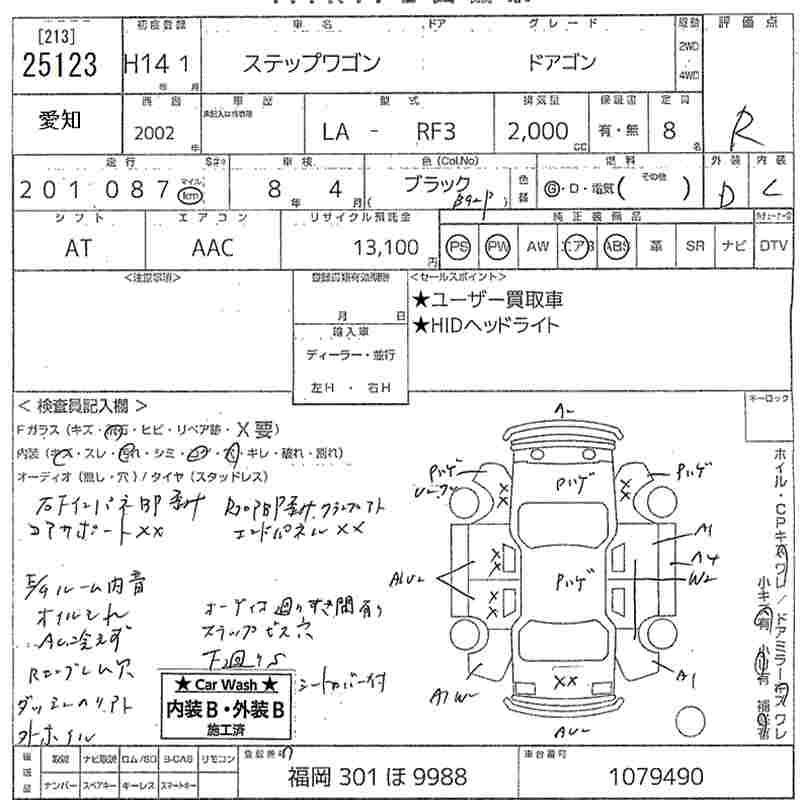 [213]
25123
初度登録
H14 1
年 月
車 名
ドア
グ レ ー ド
ステップワゴン
ドアゴン
駆動
2WD
4WD
評 価 点
R
愛知
西 暦
2002
年
車 歴
型 式
LA - RF3
排気量
2,000
cc
保証書
有・無
定 員
8
名
走 行
201 087
マイル
km
車 検
8 年 4 月
色 (Col.No)
ブラック
色替
燃 料
G・D・電気 ( その他 )
外 装
D
内 装
C
シ フ ト
AT
エ ア コ ン
AAC
リサイクル預託金
13,100
円
純 正 装 備 品
PS PW AW エアB ABS 革 SR ナビ DTV
<注意事項>
月 日
輸入車
ディーラー・並行
左H ・ 右H
<セールスポイント>
★ユーザー買取車
★HIDヘッドライト
キーロック
< 検査員記入欄 >
Fガラス (キズ・飛石・ヒビ・リペア跡・X要)
内装 (キズ・スレ・汚れ・シミ・コゲ・穴・キレ・破れ・割れ)
オーディオ (無し・穴) / タイヤ (スタッドレス)
コアサポート XX
エンドパネル XX
E/gルーム内音
オイルモレ
AC冷えず
オーディオ廻りすき間有り
ステップビス穴
下廻りS
シートカバー付
★ Car Wash ★
内装 B・外装 B
施工済
A
Pハゲ
Pハゲ
Pハゲ
XX
XX
A1
A4
W2
A1U2
Pハゲ
XX
XX
XX
A1
A1W2
AU2
ホイル・CPキズワレ / ドアミラーキズワレ
登録番号
福岡 301 ほ 9988
車台番号
1079490
取説
ナビ取説
ロム/SD
B-CAS
リモコン
ナンバー
スペアキー
キーレス
スマートキー